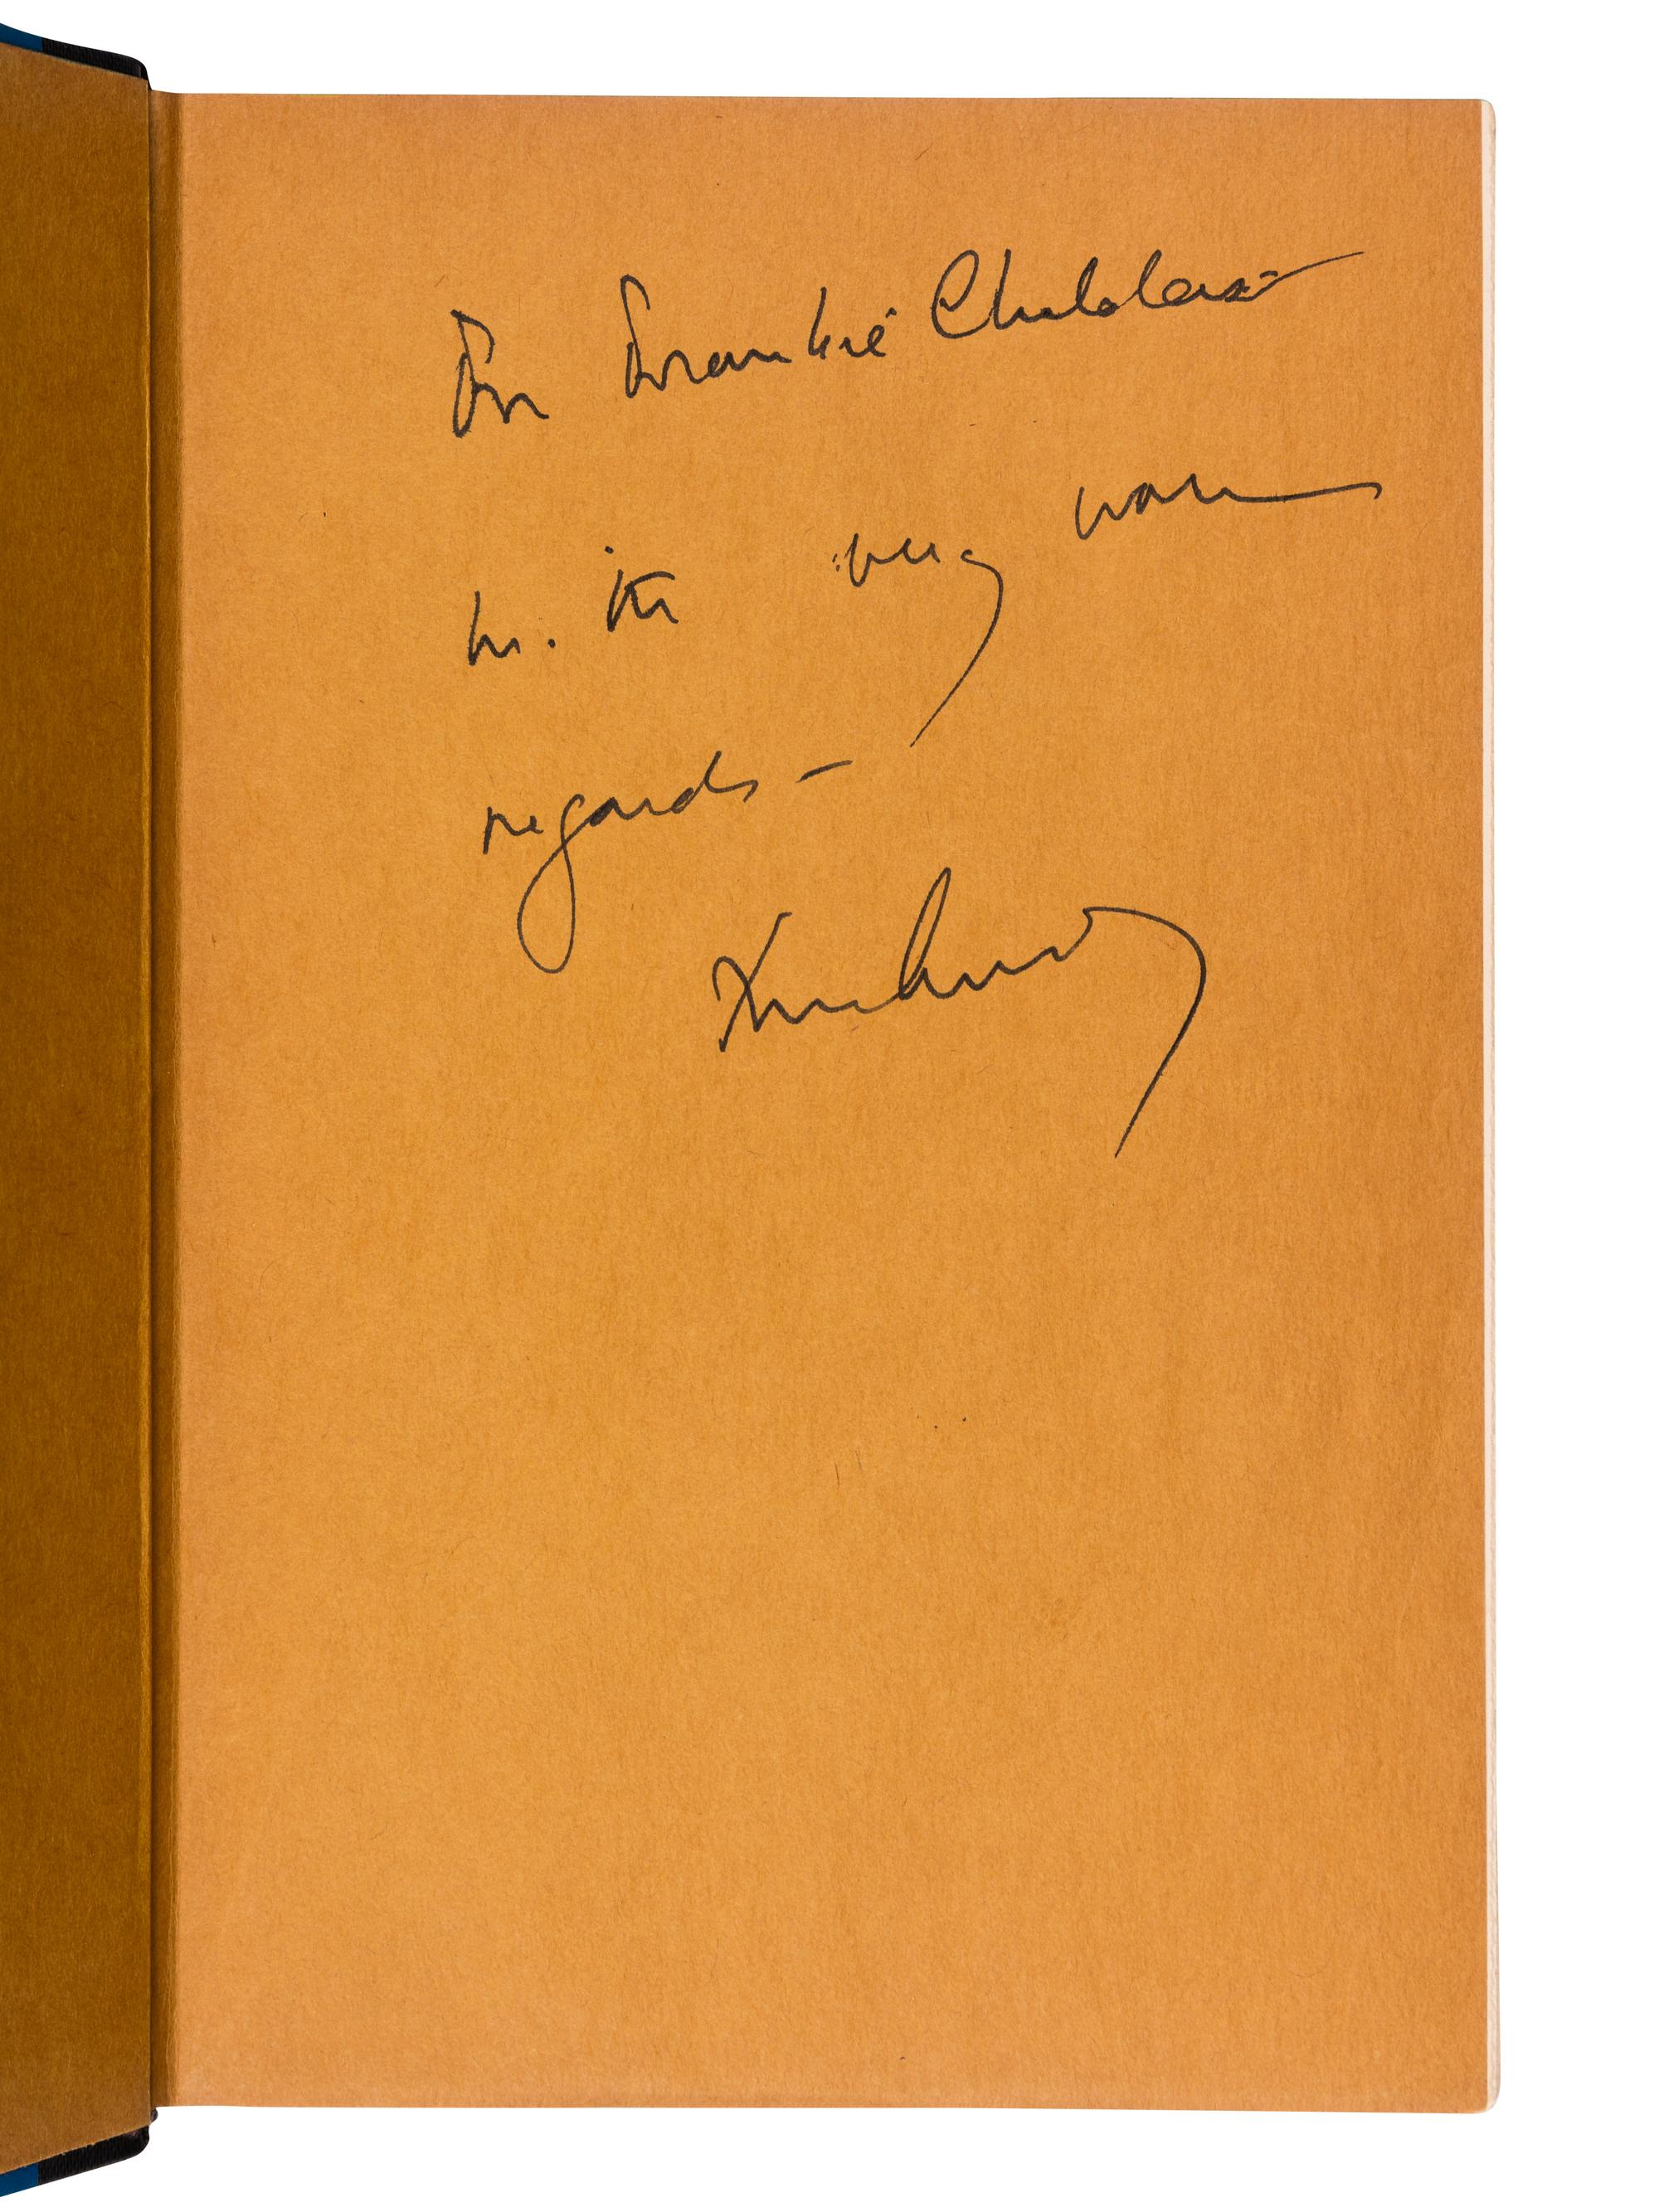 For Frankie Childers
with very warm
regards —